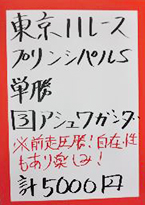 東京11レース
プリンシパルS
単勝
③アシュワガンダ
※前走圧勝！自在性
もあり楽しみ！
計5000円